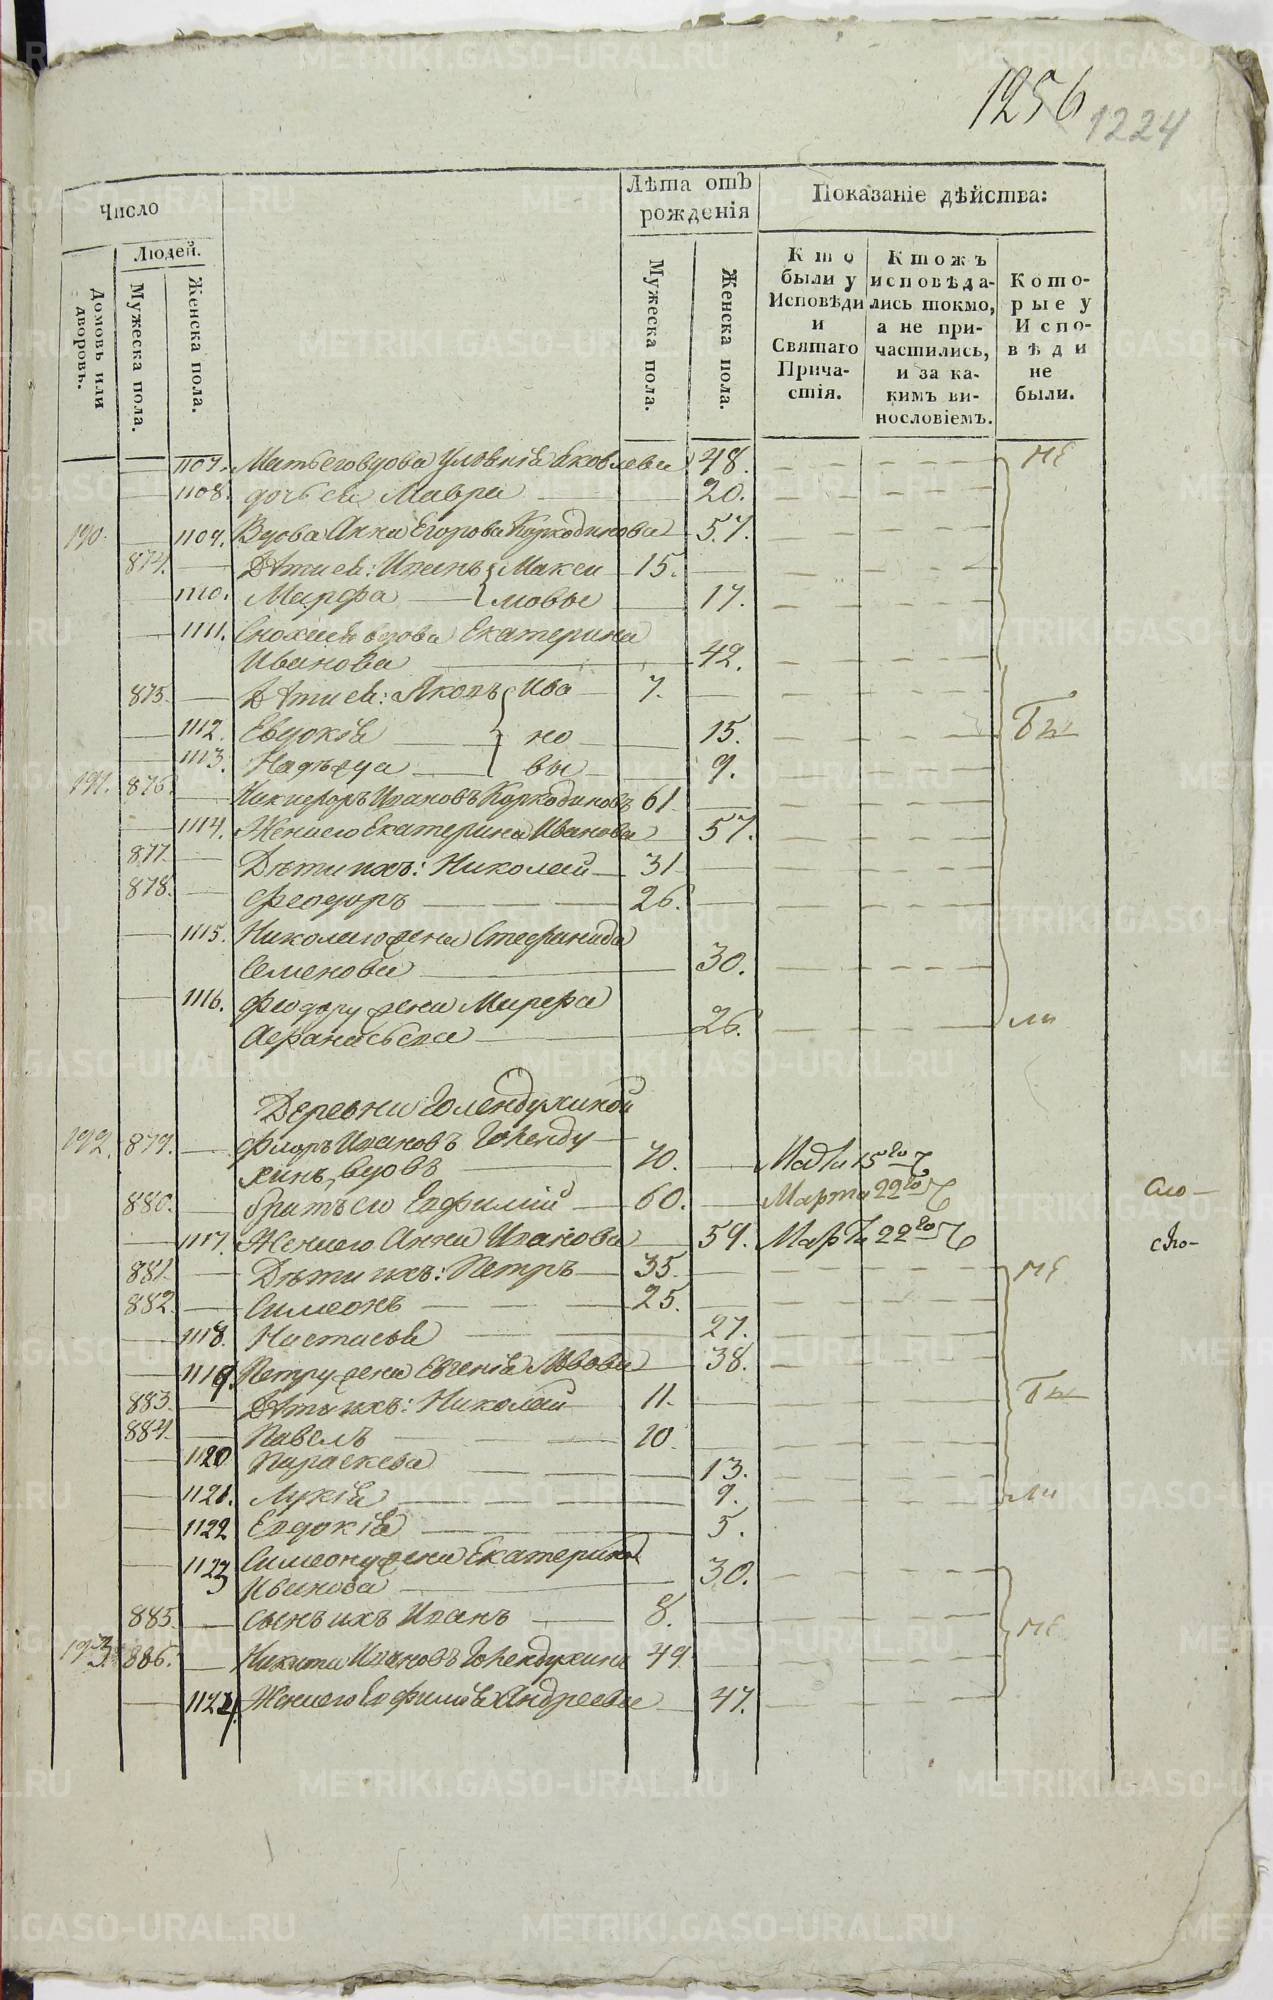 1256 1224
Число
Лѣта отъ рожденія
Показаніе дѣйства:
Людей.
Домовъ или дворовъ.
Мужеска пола.
Женска пола.
Мужеска пола.
Женска пола.
Кто были у Исповѣди и Святаго Причастія.
Ктожъ исповѣдались токмо, а не причастились, и за какимъ винословіемъ.
Которые у Исповѣди не были.
1107. Мать его вдова Яковлева 48. не
1108. дочь ея Мавра 20.
190. 1109. Вдова Анна Егорова Коркодинова 57.
874. Дѣти ея: Иванъ Макси 15.
1110. Марфа мовы 17.
1111. Сноха ея вдова Екатерина
Иванова 42.
875. Дѣти ея: Яковъ Ива 7.
1112. Евдокія но 15. бы
1113. Надежда вы 9.
191. 876. Никифоръ Ивановъ Коркодиновъ 61
1114. Жена его Екатерина Иванова 57.
877. Дѣти ихъ: Николай 31
878. Феодоръ 26.
1115. Николая жена Стефанида
Семенова 30.
1116. Феодору жена Марфа
Афанасьева 26. ли
Деревни Голендухиной
192. 879. Флоръ Ивановъ Голенду
хинъ, вдовъ 70. Марта 15го
880. братъ его Евфимій 60. Марта 22го
1117. Жена его Анна Иванова 59. Марта 22го
881. Дѣти ихъ: Петръ 35. не
882. Симеонъ 25.
1118. Настасья 27.
1119. Петру жена Евгенія Львова 38.
883. Дѣти ихъ: Николай 11. бы
884. Павелъ 10.
1120 Параскева 13.
1121. Лукія 9. ли
1122 Евдокія 5.
1123 Симеону жена Екатерина
Иванова 30.
885. сынъ ихъ Иванъ 8. не
193. 886. Никита Ивановъ Голендухинъ 49
1124. Жена его Евфимія Андреева 47.
METRIKI.GASO-URAL.RU